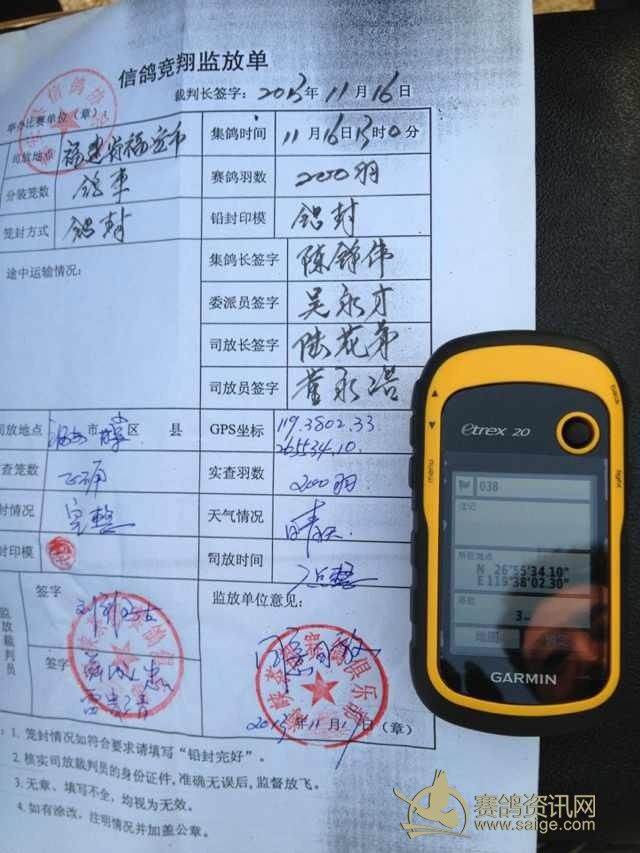 信鸽竞翔监放单
裁判长签字：2013年11月16日
举办比赛单位（章）：
司放地点 福建省福安市 集鸽时间 11月16日13时0分
分装笼数 鸽车 赛鸽羽数 2000羽
笼封方式 铝封 铅封印模 铝封
途中运输情况： 集鸽长签字 陈铮伟
委派员签字 吴永才
司放长签字 陆花弟
司放员签字 董永浩
司放地点 市 区 县 GPS坐标 119.3802.33
265534.10
查笼数 正确 实查羽数 2000羽
封情况 完整 天气情况 晴天.
封印模 司放时间
监放裁判员 签字 监放单位意见：
签字
2013年11月17日（章）
：1. 笼封情况如符合要求请填写“铅封完好”。
2. 核实司放裁判员的身份证件,准确无误后,监督放飞。
3. 无章、填写不全，均视为无效。
4. 如有涂改，注明情况并加盖公章。
etrex 20
back
menu
light
038
注记
所在地点
N 26°55'34.10"
E 119°38'02.30"
3
地图
GARMIN
赛鸽资讯网
www.saige.com